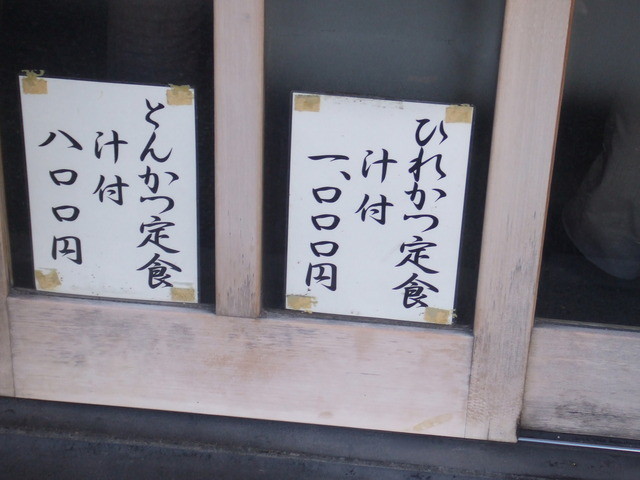 ひれかつ定食
汁付
一、〇〇〇円
とんかつ定食
汁付
八〇〇円